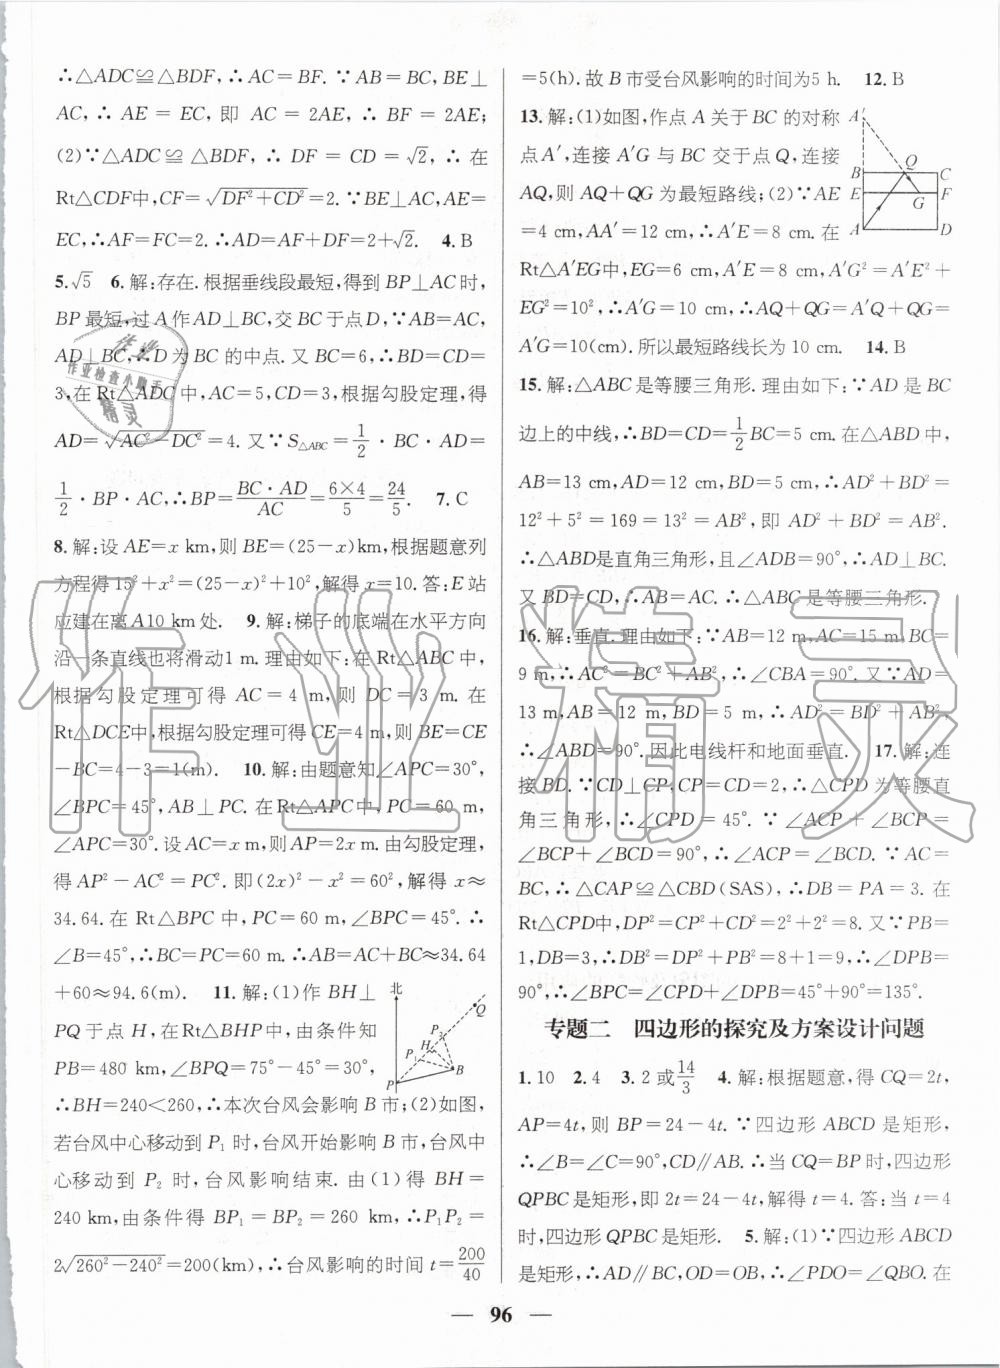 ∴△ADC≌△BDF,∴AC=BF.∵AB=BC,BE⊥
AC,∴AE=EC,即 AC=2AE,∴BF=2AE;
(2)∵△ADC≌△BDF,∴DF=CD=√2,∴在
Rt△CDF中,CF=√(DF²+CD²)=2.∵BE⊥AC,AE=
EC,∴AF=FC=2.∴AD=AF+DF=2+√2. 4.B
5.√5 6.解:存在.根据垂线段最短,得到BP⊥AC时,
BP最短,过A作AD⊥BC,交BC于点D,∵AB=AC,
AD⊥BC,∴D为BC的中点.又BC=6,∴BD=CD=
3,在Rt△ADC中,AC=5,CD=3,根据勾股定理,得
AD=√(AC²-DC²)=4.又∵S△ABC=1/2·BC·AD=
1/2·BP·AC,∴BP=BC·AD/AC=6×4/5=24/5. 7.C
8.解:设AE=x km,则BE=(25-x)km,根据题意列
方程得15²+x²=(25-x)²+10²,解得x=10.答:E站
应建在离A10 km处. 9.解:梯子的底端在水平方向
沿一条直线也将滑动1 m.理由如下:在Rt△ABC中,
根据勾股定理可得AC=4 m,则DC=3 m.在
Rt△DCE中,根据勾股定理可得CE=4m,则BE=CE
-BC=4-3=1(m). 10.解:由题意知∠APC=30°,
∠BPC=45°,AB⊥PC.在Rt△APC中,PC=60 m,
∠APC=30°.设AC=x m,则AP=2x m.由勾股定理,
得AP²-AC²=PC².即(2x)²-x²=60²,解得x≈
34.64.在Rt△BPC中,PC=60 m,∠BPC=45°.∴
∠B=45°,∴BC=PC=60 m.∴AB=AC+BC≈34.64
+60≈94.6(m). 11.解:(1)作BH⊥
PQ于点H,在Rt△BHP中,由条件知
PB=480 km,∠BPQ=75°-45°=30°,
∴BH=240<260,∴本次台风会影响B市;(2)如图,
若台风中心移动到P₁时,台风开始影响B市,台风中
心移动到P₂时,台风影响结束.由(1)得BH=
240 km,由条件得BP₁=BP₂=260 km,∴P₁P₂=
2√(260²-240²)=200(km),∴台风影响的时间t=200/40
北
Q
P₂
H
P₁
B
P
=5(h).故B市受台风影响的时间为5 h. 12.B
13.解:(1)如图,作点A关于BC的对称
点A′,连接A′G与BC交于点Q,连接
AQ,则AQ+QG为最短路线;(2)∵AE
=4 cm,AA′=12 cm,∴A′E=8 cm.在
Rt△A′EG中,EG=6 cm,A′E=8 cm,A′G²=A′E²+
EG²=10²,∴A′G=10 cm,∴AQ+QG=A′Q+QG=
A′G=10(cm).所以最短路线长为10 cm. 14.B
A′
Q
B
C
E
F
G
A
D
15.解:△ABC是等腰三角形.理由如下:∵AD是BC
边上的中线,∴BD=CD=1/2BC=5 cm.在△ABD中,
AB=13 cm,AD=12 cm,BD=5 cm,∴AD²+BD²=
12²+5²=169=13²=AB²,即AD²+BD²=AB².
∴△ABD是直角三角形,且∠ADB=90°,∴AD⊥BC.
又BD=CD,∴AB=AC.∴△ABC是等腰三角形.
16.解:垂直.理由如下:∵AB=12 m,AC=15 m,BC=
9 m,∴AC²=BC²+AB²,∴∠CBA=90°.又∵AD=
13 m,AB=12 m,BD=5 m,∴AD²=BD²+AB²,
∴∠ABD=90°.因此电线杆和地面垂直. 17.解:连
接BD.∵CD⊥CP,CP=CD=2,∴△CPD为等腰直
角三角形,∴∠CPD=45°.∵∠ACP+∠BCP=
∠BCP+∠BCD=90°,∴∠ACP=∠BCD.∵AC=
BC,∴△CAP≌△CBD(SAS),∴DB=PA=3.在
Rt△CPD中,DP²=CP²+CD²=2²+2²=8.又∵PB=
1,DB=3,∴DB²=DP²+PB²=8+1=9,∴∠DPB=
90°,∴∠BPC=∠CPD+∠DPB=45°+90°=135°.
专题二 四边形的探究及方案设计问题
1.10 2.4 3.2或14/3 4.解:根据题意,得CQ=2t,
AP=4t,则BP=24-4t,∵四边形ABCD是矩形,
∴∠B=∠C=90°,CD∥AB.∴当CQ=BP时,四边形
QPBC是矩形,即2t=24-4t,解得t=4.答:当t=4
时,四边形QPBC是矩形. 5.解:(1)∵四边形ABCD
是矩形,∴AD∥BC,OD=OB,∴∠PDO=∠QBO.在
— 96 —
作业
作业检查小助手
精灵
作业精灵